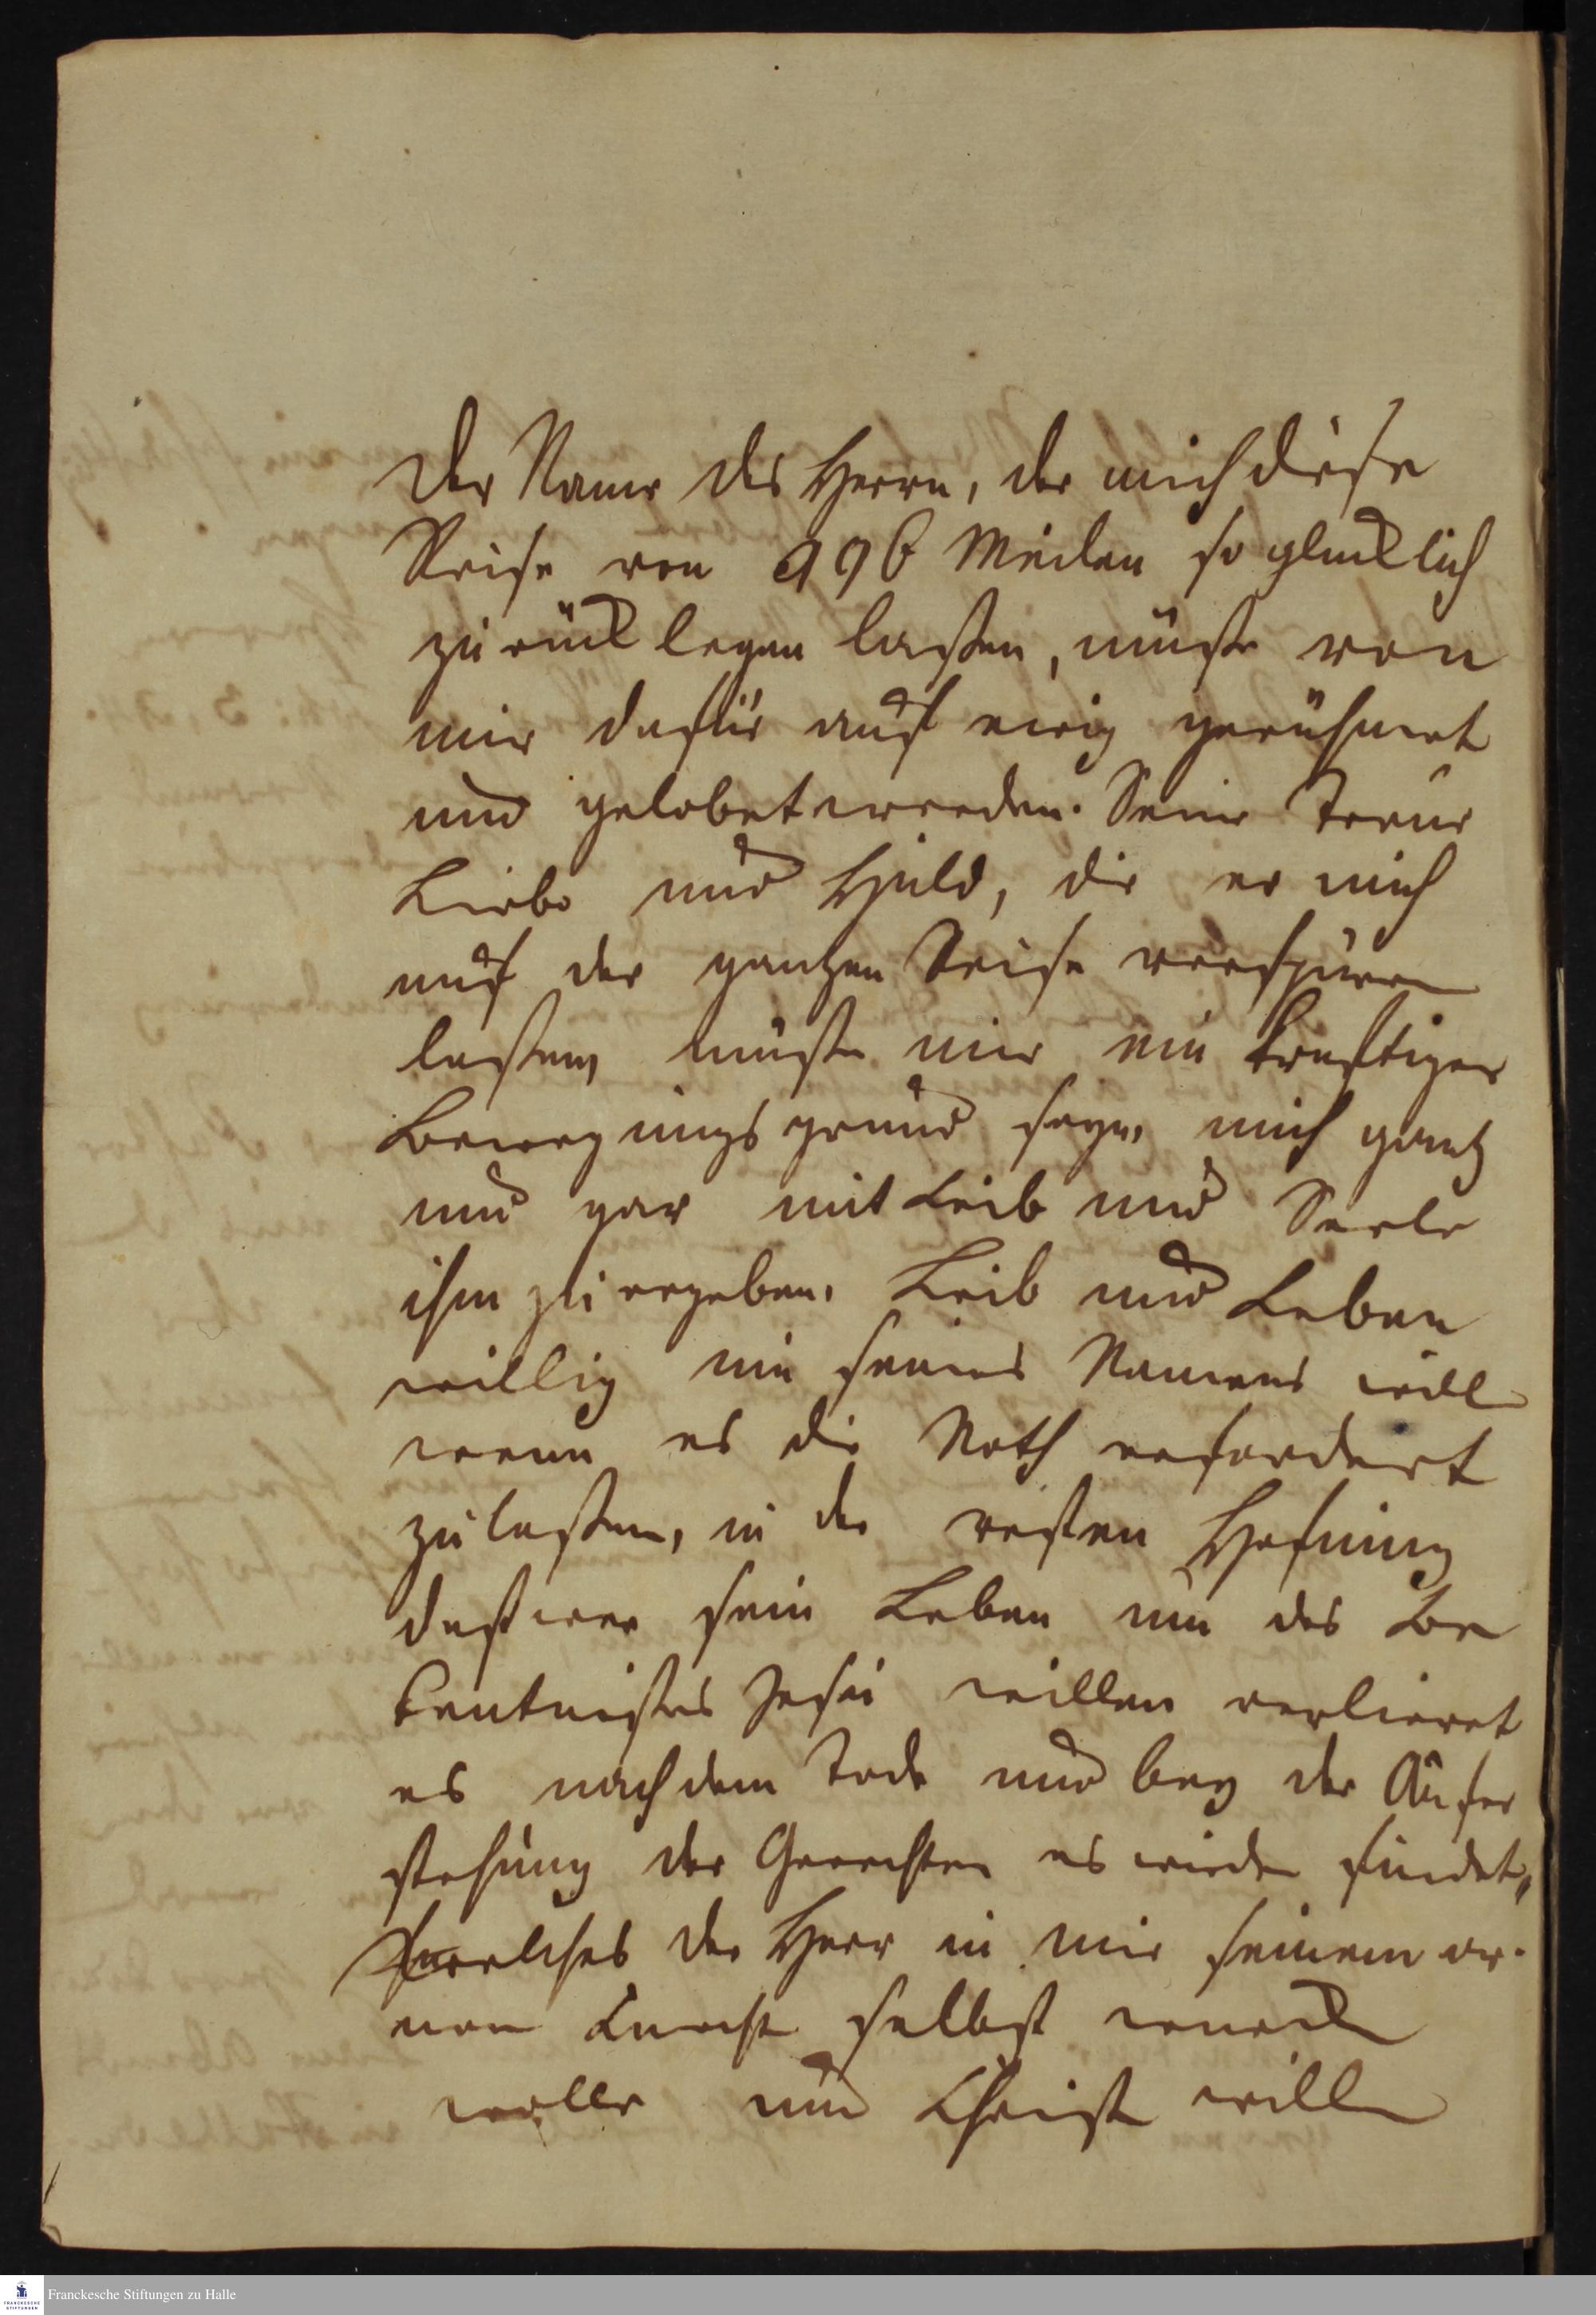 Der Name des Herrn, der mich diese
Reise von 996 Meilen so glücklich
zurück legen laßen, müße von
mir dafür auf ewig gerühmet
und gelobet werden. Seine Treue
Liebe und Huld, die er mich
auf der gantzen Reise verspüren
laßen, müße mir ein kräftiger
Bewegungs grund seyn, mich gantz
und gar mit Leib und Seele
ihm zu ergeben, Leib und Leben
willig um seines Namens will
wenn es die Noth erfordert
zu laßen, in der vesten Hofnung
daß wer sein Leben um des Be
kentnißes Jesu willen verlieret
es nach dem Tode und bey der Aufer
stehung der Gerechten es wieder findet,
welches der Herr in mir seinem ar-
men Knecht selbst
wolle um Christi willen
Franckesche Stiftungen zu Halle